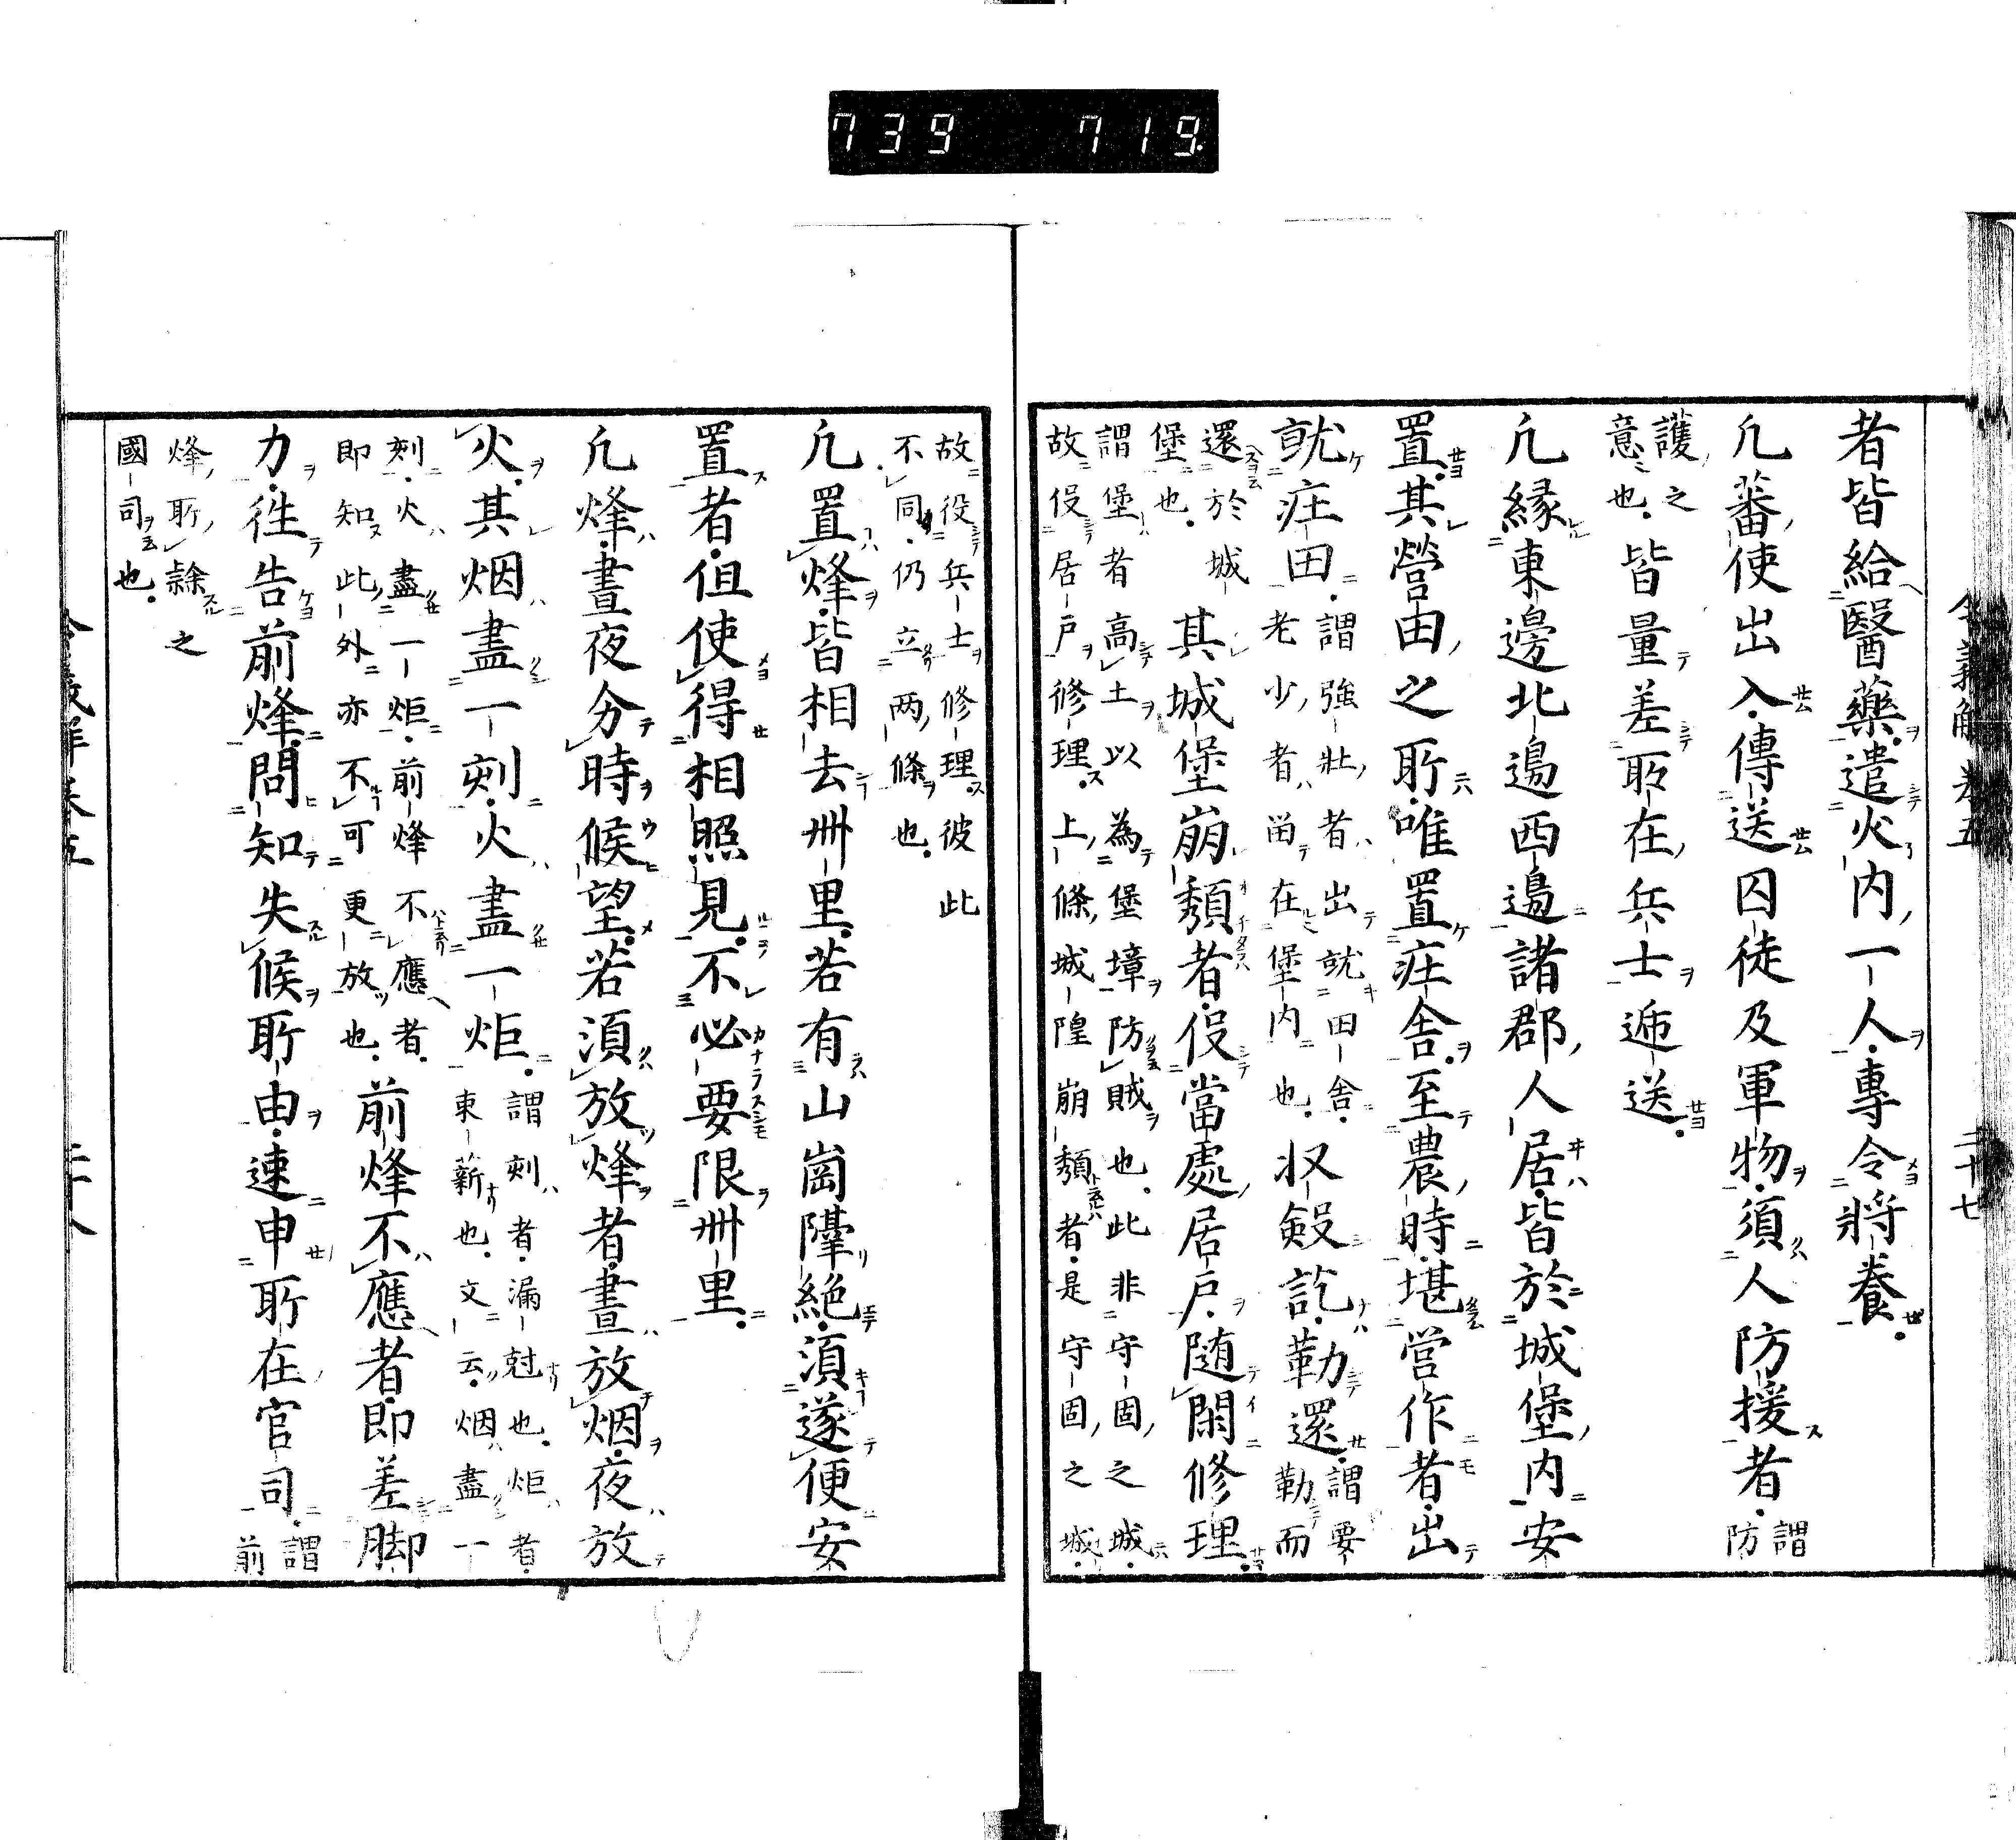 739 719.
令義解卷五 二十七
者皆給醫藥遣火内一人專令將養
凢蕃使出入傳送囚徒及軍物須人防援者謂防
護之意也皆量差所在兵士逓送
凢縁東邊北邊西邊諸郡人居皆於城堡内安
置其營田之所唯置庄舎至農時堪営作者出
就庄田謂強壯者出就田舎老少者畄在堡内也収斂訖勒還謂要勒而
還於城堡也其城堡崩頽者伇當處居戸随閑修理
謂堡者高土以為堡墇防賊也此非守固之城
故伇居戸修理上條城隍崩頽者是守固之城
故役兵士修理彼此
不同仍立两條也
凢置烽皆相去卌里若有山崗隔絶湏遂便安
置者但使得相照見不必要限卌里
凢烽晝夜分時候望若湏放烽者晝放烟夜放
火其烟盡一刻火盡一炬謂刻者漏尅也炬者束薪也文云烟盡一
刻火盡一炬前烽不應者即知此外亦不可更放也前烽不應者即差脚
力徃告前烽問知失候所由速申所在官司謂前
烽所隸之
國司也